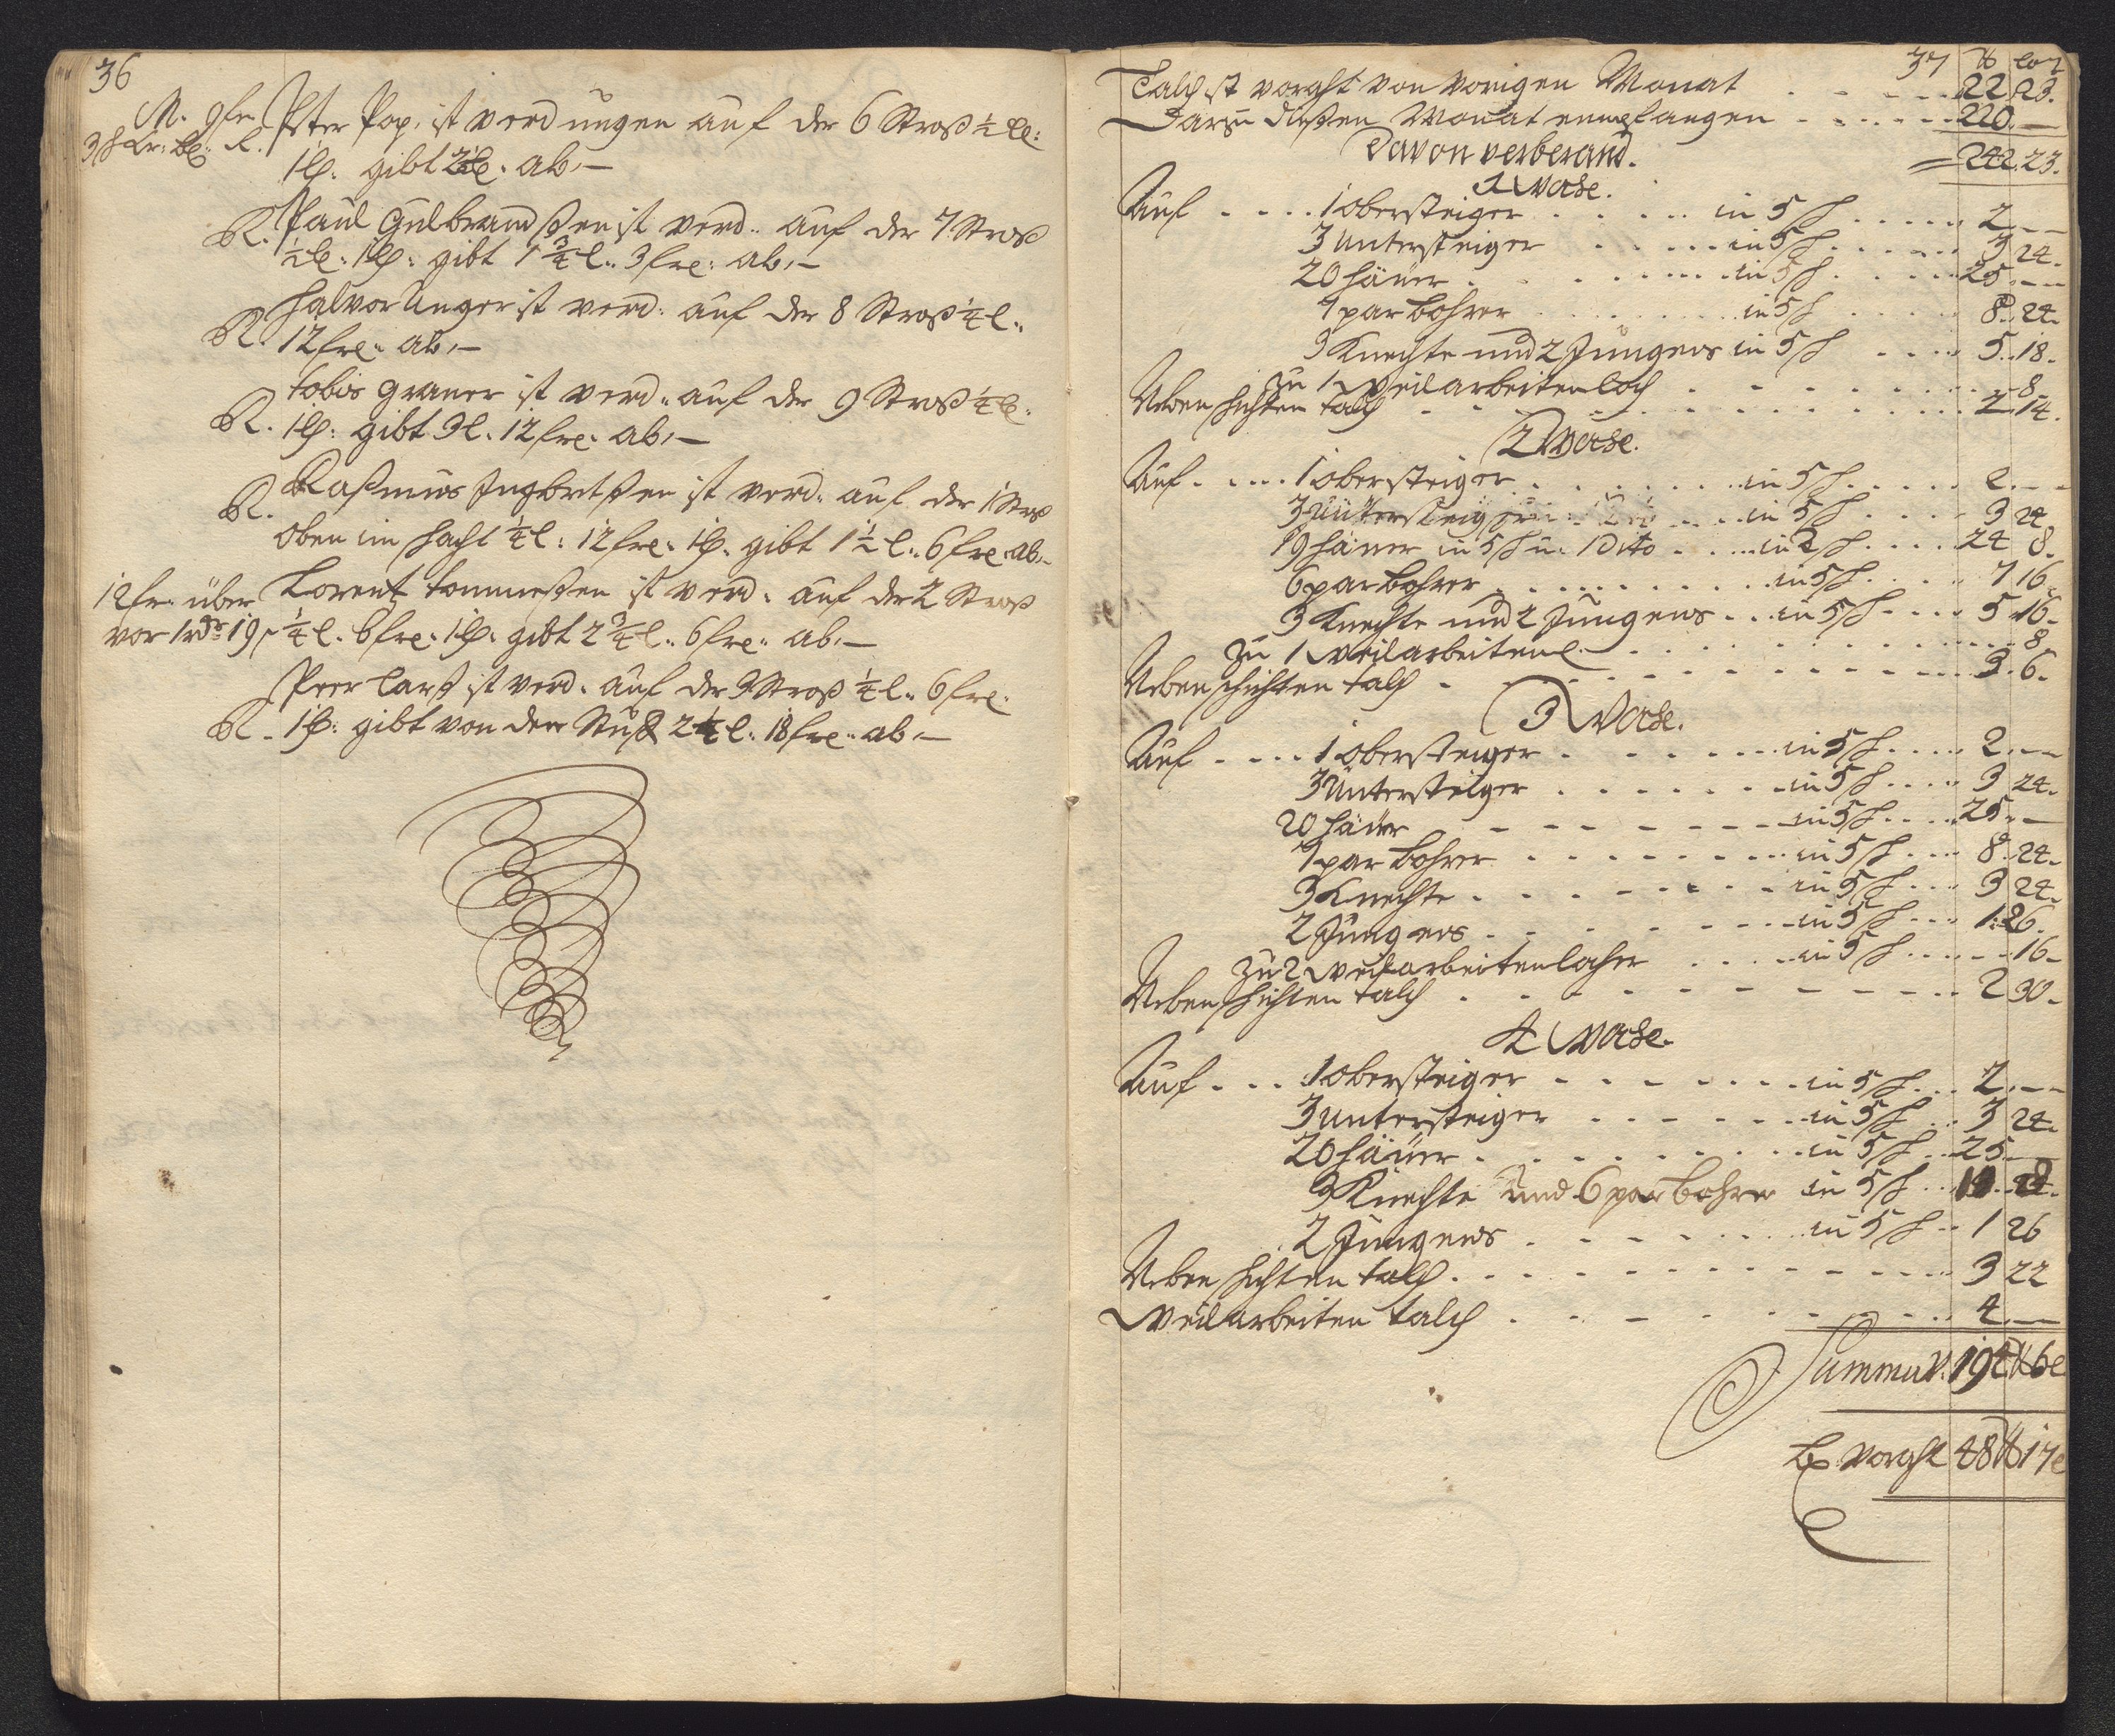 36
M. 9fr. Peter Pop. ist verdungen auf der 6 Stroß ½ l:
1 lß. gibt 2 l. ab,—
R. Paul Gulbrandßen ist verd.. auf der 7. Stroß
½ l: 1 lß: gibt 1¾ l.. 3 fre: ab,—
Halvor Unger ist verd: auf der 8 Stroß ¼ l..
R. 12 fre.. ab,—
Tobis Graner ist verd.. auf der 9 Stroß ¼ l.
R. 1 lß: gibt 3 l. 12 fre. ab,—
Raßmus Ingbretßen ist verd. auf der 1 Stroß
R.
oben im schacht ¼ l: 12 fre. 1 lß. gibt 1½ l.. 6 fre ab,—
12 fr. über Lorentz Tommeßen ist verd. auf der 2 Stroß
vor 1 rdr 19 ß ¼ l. 6 fre. 1 lß: gibt 2¾ l.. 6 fre.. ab,—
Peer Larß ist verd. auf der 3 Stroß ¼ l.. 6 fre.
R. 1 lß: gibt von den Stuß 2¼ l. 18 fre.. ab,—
37 ℔ lot
Talch ist vorght von vorigen Monat 22 23.
Darzu dießen Monat emnpfangen 220.—
Davon verberand. 242. 23.
1 Woche.
Auf 1 obersteiger in 5 ß 2.—
3 untersteiger in 5 ß 3 24.
20 häuer in 5 ß 25.—
7 par bohrer in 5 ß 8. 24.
3 Knechte und 2 Jungens in 5 ß 5. 18.
zu 1 Weilarbeitenloch 8
Neben schichten talch 2. 14.
2 Woche.
Auf 1 obersteiger in 5 ß 2.—
3 untersteiger in 5 ß 3 24
19 häuer in 5 ß u. 1 Dito in 2 ß 24 8.
6 par bohrer in 5 ß 7 16.
3 Knechte und 2 Jungens in 5 ß 5 16.
zu 1 Weilarbeitenl. 8.
Neben schichten talch 3. 6.
3 Woche.
Auf 1 obersteiger in 5 ß 2.—
3 untersteiger in 5 ß 3 24.
20 häuer in 5 ß 25.—
7 par bohrer in 5 ß 8. 24.
3 Knechte in 5 ß 3 24.
2 Jungens in 5 ß 1. 26.
zu 2 Weilarbeitenlöcher in 5 ß 16.
Neben schichten talch 2 30.
4 Woche.
Auf 1 obersteiger in 5 ß 2.—
3 untersteiger in 5 ß 3 24.
20 häuer in 5 ß 25.—
3 Knechte und 6 par bohrer in 5 ß
2 Jungens in 5 ß 1 26
Neben schichten talch 3 22
Weilarbeiten talch 4.—
Summa. 194 ℔ 6 l
Es vorght 48 ℔ 17 l